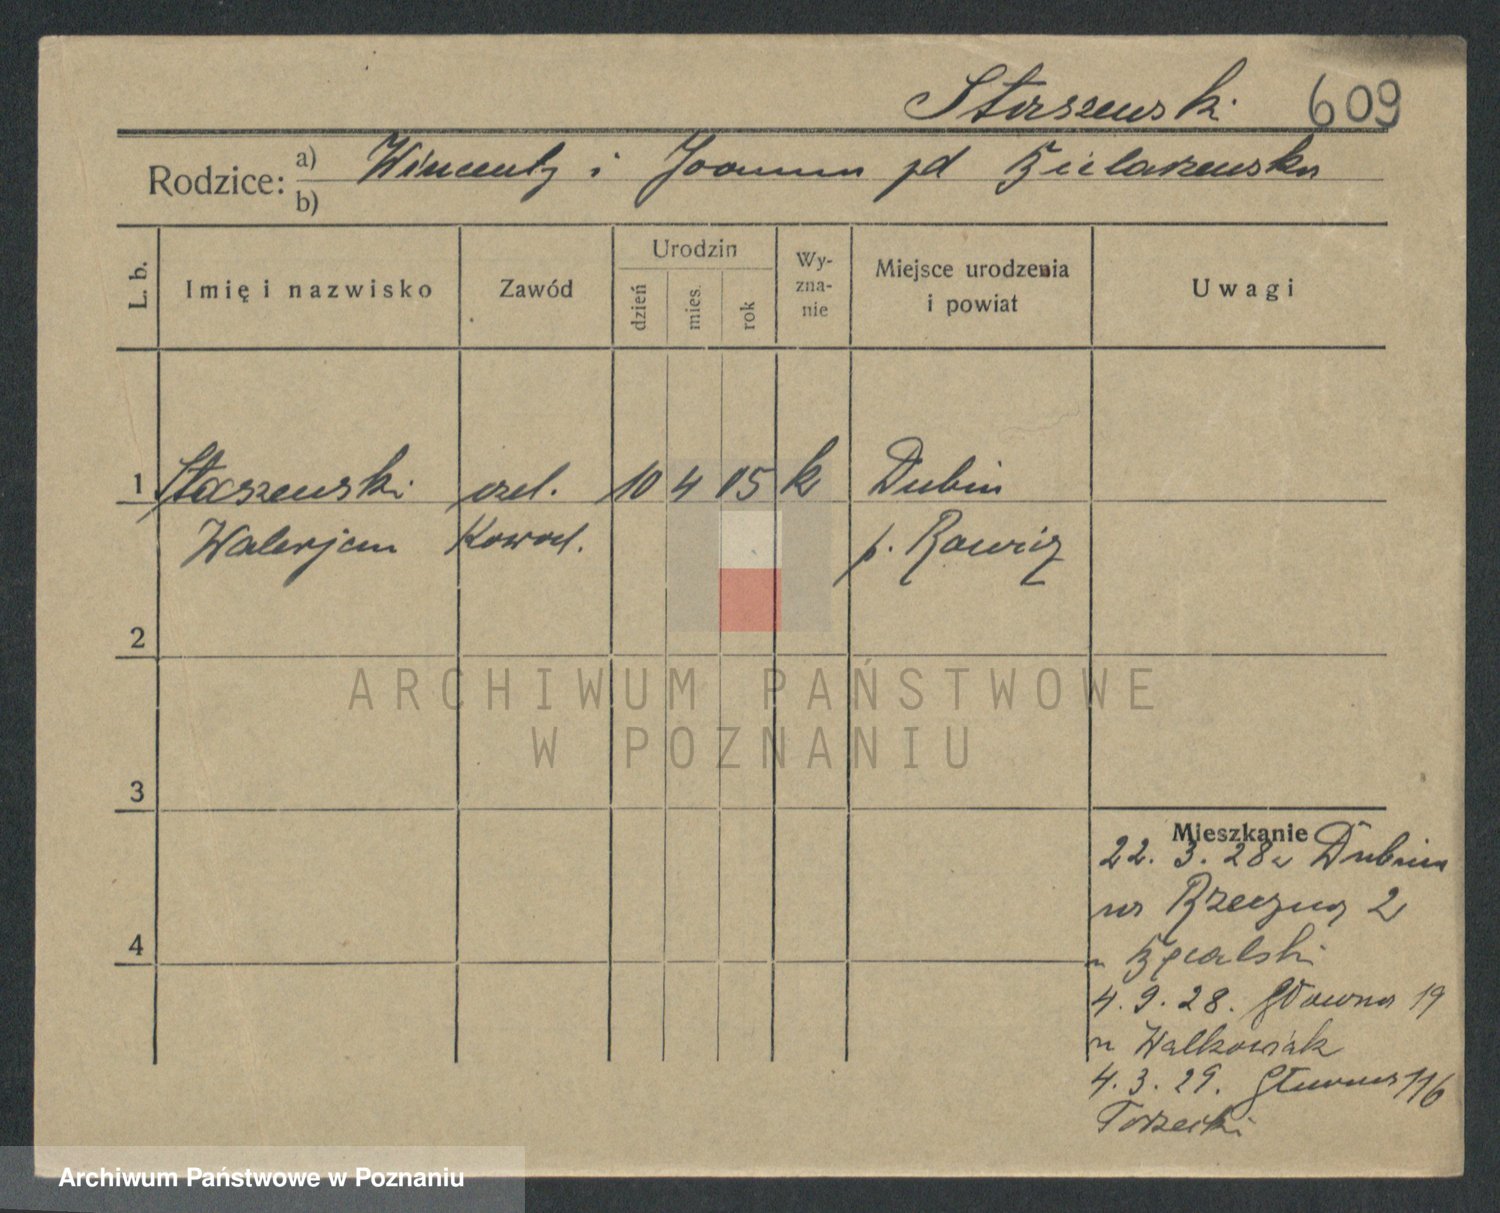 Staszewski 609
Rodzice: a) Wincenty i Joanna pd
b)
L. b. Imię i nazwisko Zawód Urodzin dzień mies. rok Wy-zna-nie Miejsce urodzenia i powiat Uwagi
1 Staszewski czel. 10 4 05 k Dubin
Walerjan Kowal. p. Rawicz
2
ARCHIWUM PAŃSTWOWE
W POZNANIU
3
Mieszkanie
22. 3. 28 z Dubina
na 2
u
4. 9. 28. Główna 19
u Walkowiak
4. 3. 29. Główna 116
Torzecki
4
Archiwum Państwowe w Poznaniu